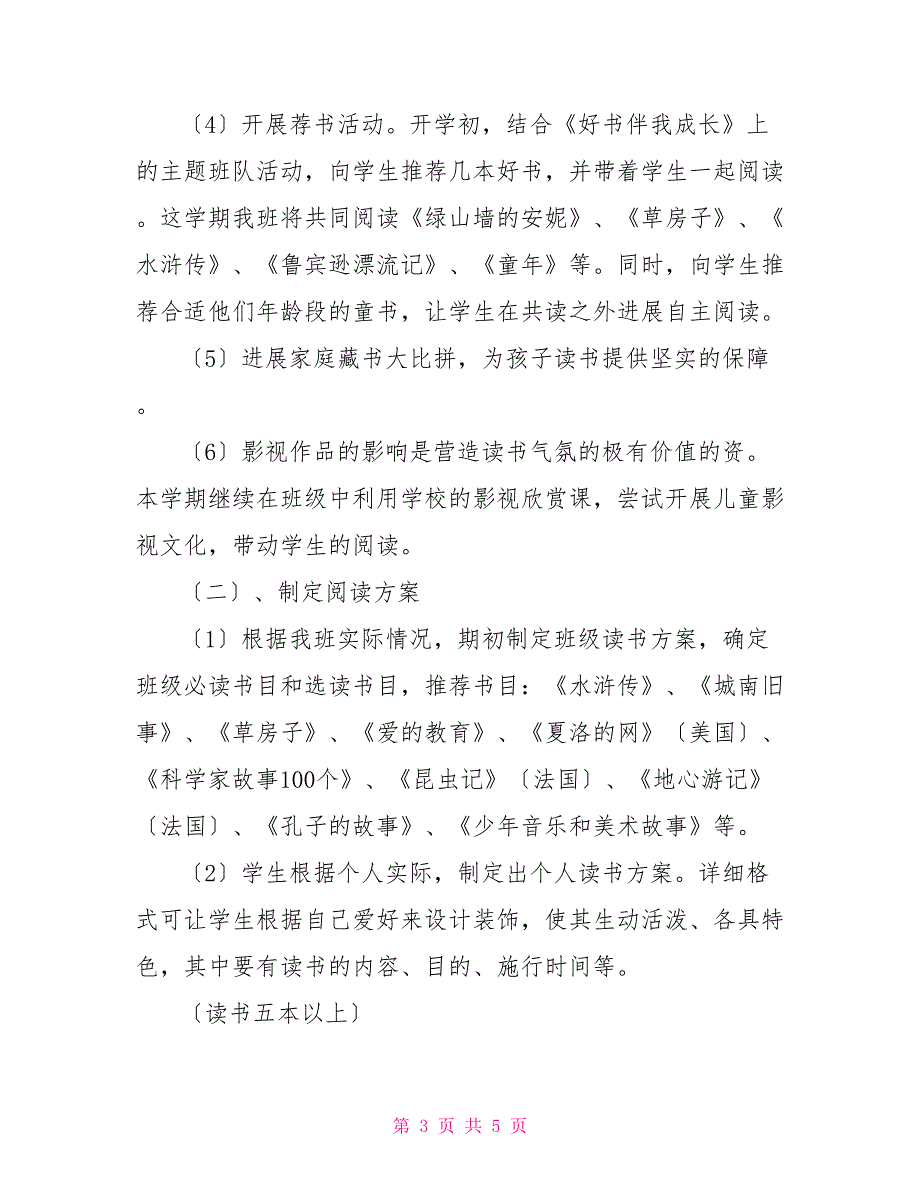 〔4〕开展荐书活动。开学初，结合《好书伴我成长》上
的主题班队活动，向学生推荐几本好书，并带着学生一起阅读
。这学期我班将共同阅读《绿山墙的安妮》、《草房子》、《
水浒传》、《鲁宾逊漂流记》、《童年》等。同时，向学生推
荐合适他们年龄段的童书，让学生在共读之外进展自主阅读。
〔5〕进展家庭藏书大比拼，为孩子读书提供坚实的保障
。
〔6〕影视作品的影响是营造读书气氛的极有价值的资。
本学期继续在班级中利用学校的影视欣赏课，尝试开展儿童影
视文化，带动学生的阅读。
〔二〕、制定阅读方案
〔1〕根据我班实际情况，期初制定班级读书方案，确定
班级必读书目和选读书目，推荐书目：《水浒传》、《城南旧
事》、《草房子》、《爱的教育》、《夏洛的网》〔美国〕、
《科学家故事100个》、《昆虫记》〔法国〕、《地心游记》
〔法国〕、《孔子的故事》、《少年音乐和美术故事》等。
〔2〕学生根据个人实际，制定出个人读书方案。详细格
式可让学生根据自己爱好来设计装饰，使其生动活泼、各具特
色，其中要有读书的内容、目的、施行时间等。
〔读书五本以上〕
第 3 页 共 5 页